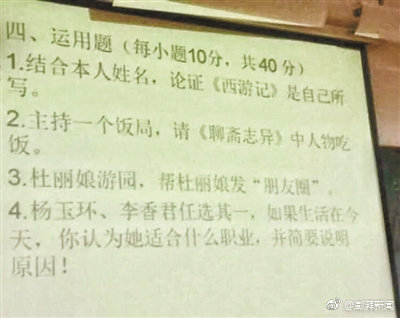 四、运用题（每小题10分，共40分）
1.结合本人姓名，论证《西游记》是自己所
写。
2.主持一个饭局，请《聊斋志异》中人物吃
饭。
3.杜丽娘游园，帮杜丽娘发“朋友圈”。
4.杨玉环、李香君任选其一，如果生活在今
天，你认为她适合什么职业，并简要说明
原因！
@澎湃新闻